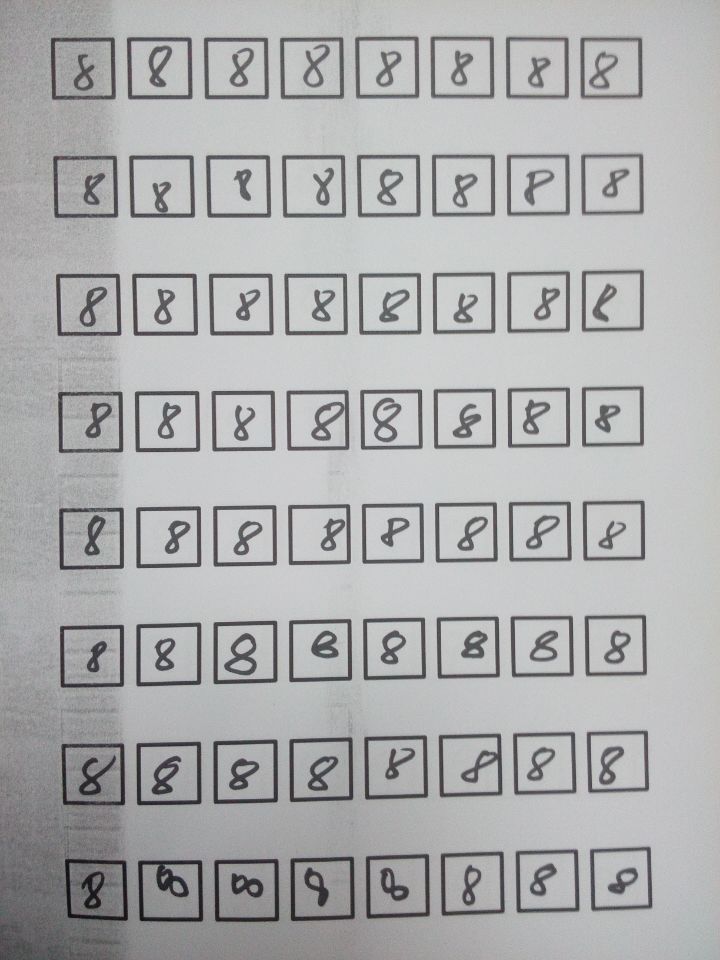 8 8 8 8 8 8 8 8
8 8 8 8 8 8 8 8
8 8 8 8 8 8 8 8
8 8 8 8 8 8 8 8
8 8 8 8 8 8 8 8
8 8 8 8 8 8 8 8
8 8 8 8 8 8 8 8
8 8 8 8 8 8 8 8